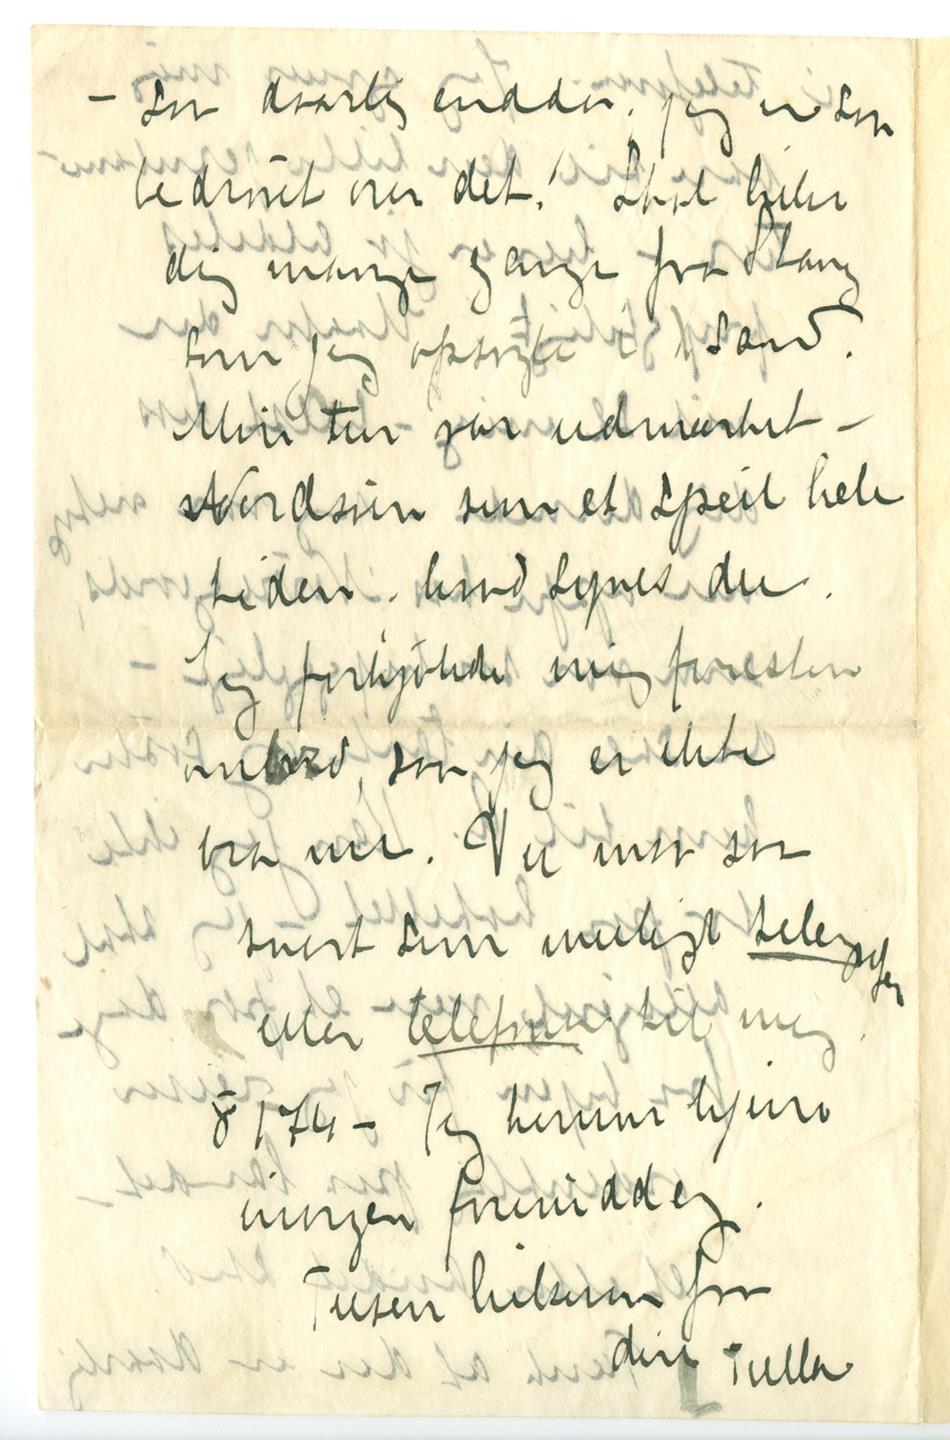 – saa daarlig endda. jeg er saa
bedrøvet over det! Skal hilse
dig mange gange fra Stang
som jeg opsøgte i Xsand.
Min tur var udmærket –
Nordsøen som et speil hele
tiden. hvad synes du.
Jeg forkjølede mig forresten
ombord, saa jeg er ikke
bra nu. Vil maa saa
snart som muligt telegrafer
eller telefoner til mig.
8174 – Jeg kommer hjem
imorgen formiddag.
Tusen hilsener fra
din Tulla